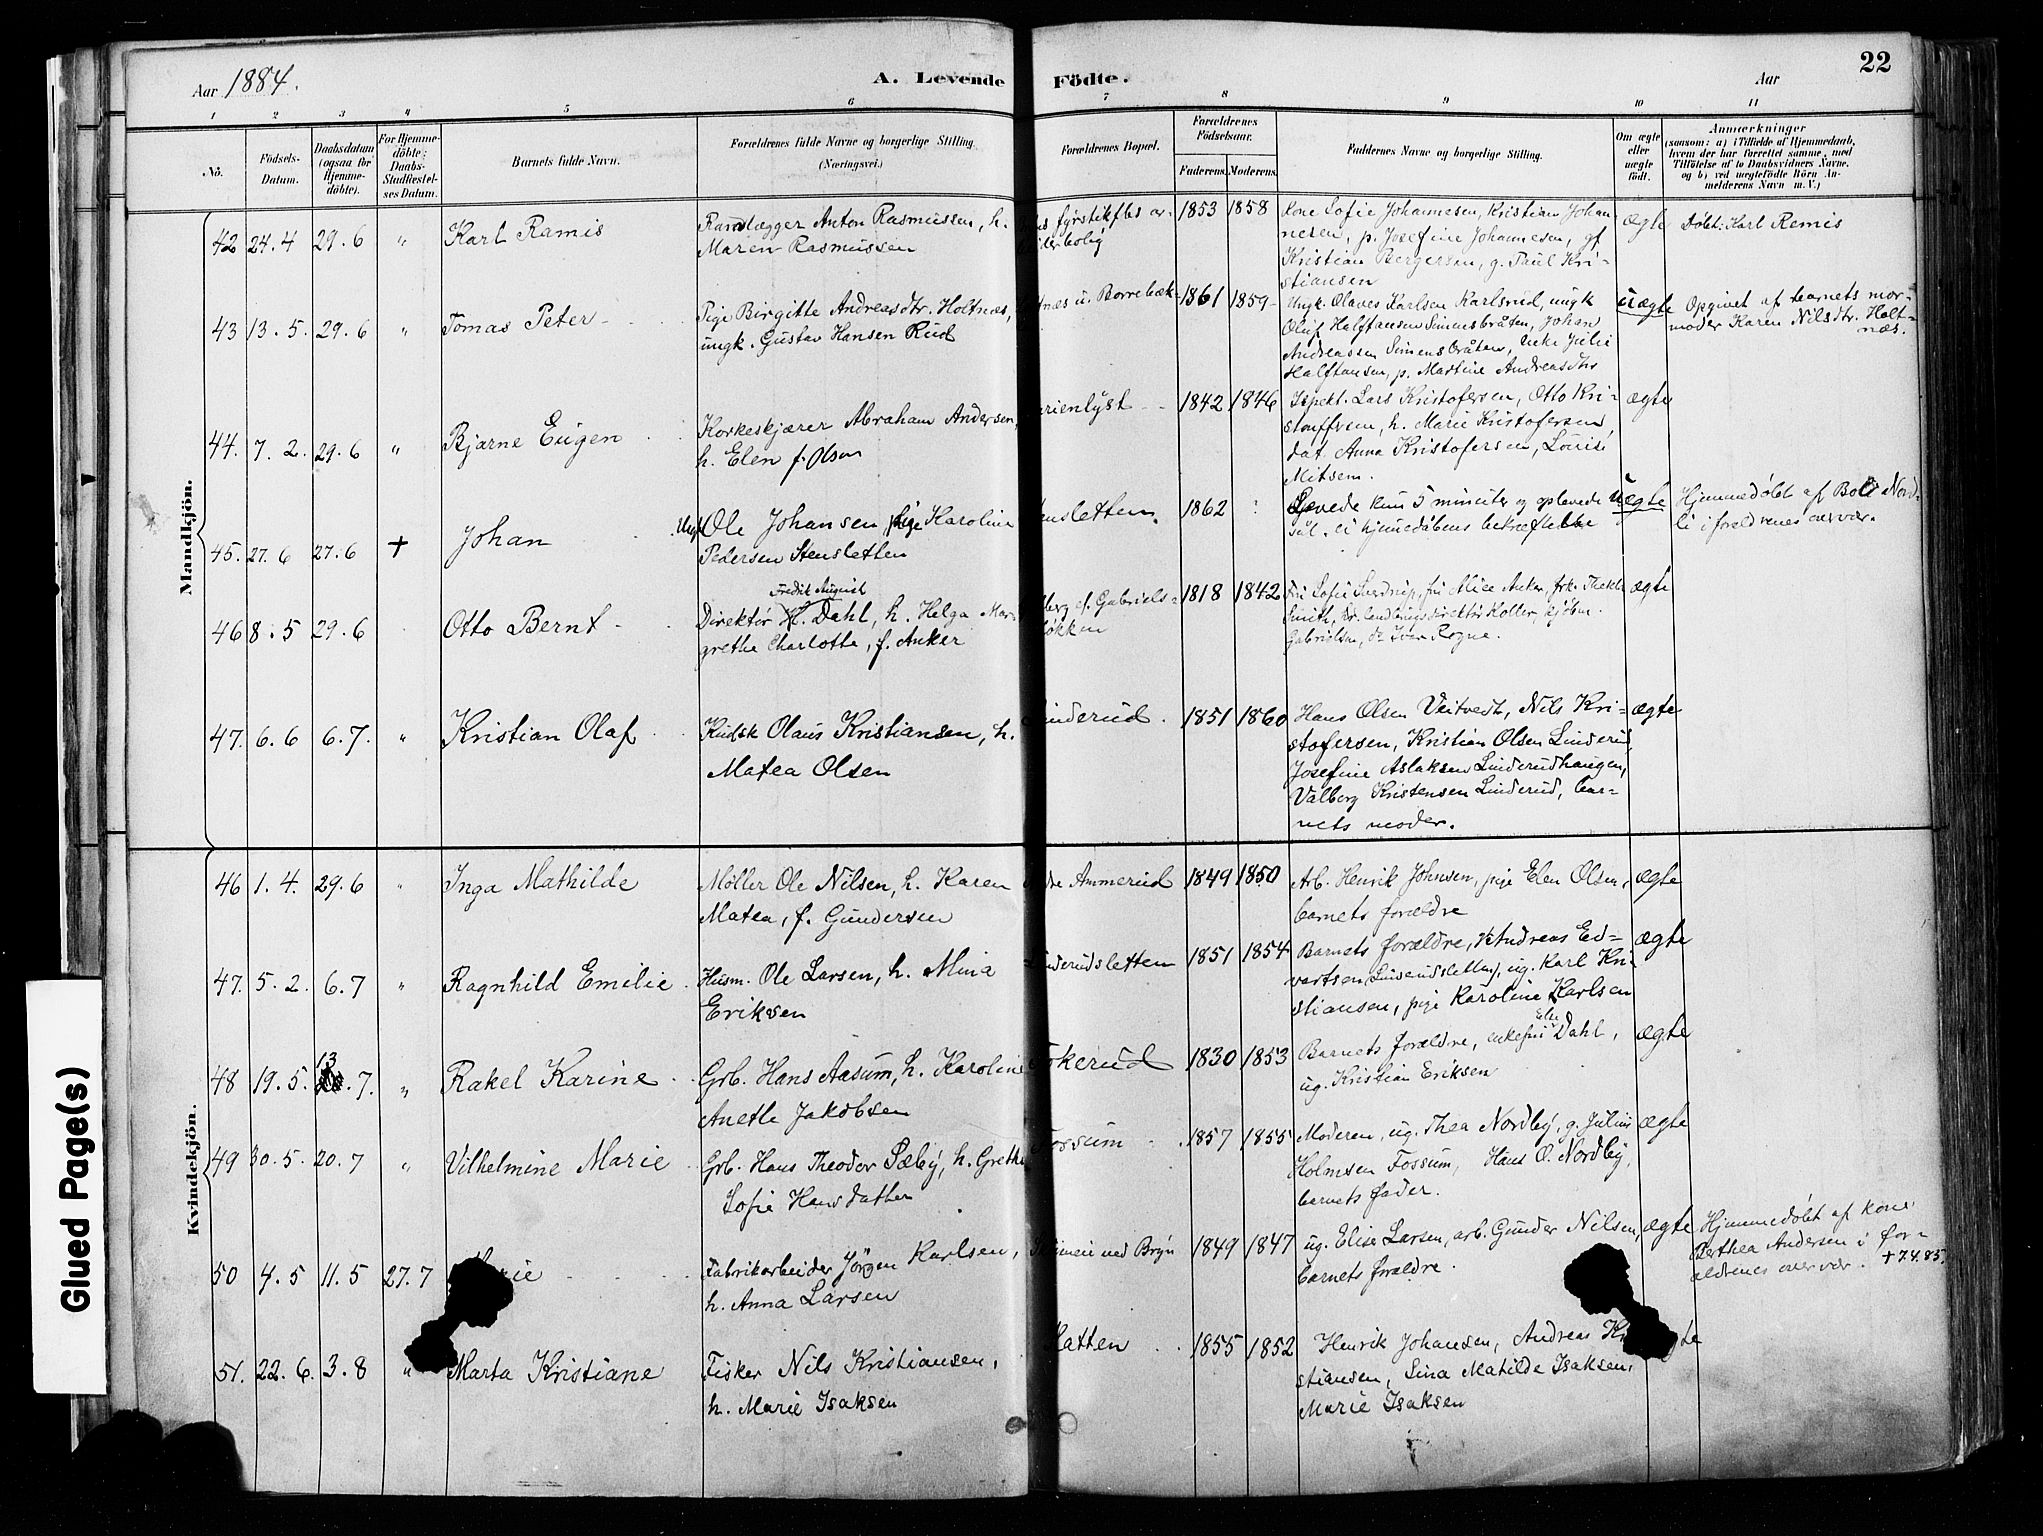 Aar 1884.
A. Levende Födte.
Aar
22
1 2 3 4 5 6 7 8 9 10 11
No.
Födsels-Datum.
Daabsdatum (ogsaa for Hjemme-döbte).
For Hjemme-döbte: Daabs Stadfæstel-ses Datum.
Barnets fulde Navn.
Forældrenes fulde Navne og borgerlige Stilling (Næringsvei.)
Forældrenes Bopæl.
Forældrenes Födselsaar.
Faderens. Moderens.
Faddernes Navne og borgerlige Stilling.
Om ægte eller uægte födt.
Anmærkninger
(saasom: a) i Tilfælde af Hjemmedaab,
hvem der har forrettet samme, med
Tilföielse af to Daabsvidners Navne.
og b) ved uægtefödte Börn An-
melderens Navn m. V.)
Mandkjön.
42 24.4 29.6 " Karl Ramis
Anton Rasmussen, h.
Maren Rasmussen
fyrstikfbs ar-
bolig
1853 1858
Kone Sofie Johannesen, Kristian Johan-
nesen, p. Josefine Johannesen, gf
Kristian Bergersen, g. Paul Kri-
stiansen
ægte
Döbt: Karl Remis
43 13.5. 29.6 " Tomas Peter
Pige Birgitte Andreasdtr. Holtnæs,
ungk. Gustav Hansen Rud
næs u. Borrebæk
1861 1859
Ungk. Olaves Karlsen Karlsrud, ungk
Oluf Halftansen Simensbråten, Johan
Andreassen Simensbråten, enke Julie
Halftansen, p. Martine Andreasdtr
uægte
Opgivet af barnets mor-
moder Karen Nilsdtr. Holt-
næs.
44. 7.2. 29.6 " Bjarne Eugen
Korkeskjærer Abraham Andersen,
h. Elen f. Olsen
rienlyst
1842 1846
Lars Kristofersen, Otto Kri-
stoffersen, h. Marie Kristofersen,
dat. Anna Kristofersen, Louise
Mitsem.
ægte
45. 27.6 27.6 + Johan
Ungk Ole Johansen pige Karoline
Pedersen Stensletten
ensletten.
1862 :
Levede kun 5 minuter og oplevede
ei hjemmedåbens bekræftelse
uægte
Hjemmedöbt af Nord-
li i forældrenes overvær.
46 8.5 29.6 Otto Bernt
Fredik August
Direktør Dahl, h. Helga Mar-
grethe Charlotte, f. Anker
berg af. Gabriels-
løkken
1818 1842
Fru Sofie Sverdrup, fru Alice Anker, frk. Thekla
Smith, kjøbm.
Gabrielsen, Ivar Rogne.
ægte
47. 6.6 6.7. " Kristian Olaf
Kudsk Olaus Kristiansen, h.
Matea Olsen
inderud.
1851 1860
Hans Olsen Veitvedt, Nils Kri-
stofersen, Kristian Olsen Linderud,
Josefine Aslaksen Linderudhaugen,
Valborg Kristensen Linderud, bar-
nets moder.
ægte
Kvindekjön.
46 1.4. 29.6 " Inga Mathilde
Møller Ole Nilsen, h. Karen
Matea, f. Gundersen
Ammerud
1849 1850
Arb. Henrik Johnsen, pige Elen Olsen,
barnets forældre
ægte
47. 5.2. 6.7 " Ragnhild Emilie
Husm. Ole Larsen, h. Mina
Eriksen
inderudsletten
1851 1854
Barnets forældre, Andreas Ed-
vartsen Linderudsletten, ug. Karl Kri-
stiansen, pige Karoline Karlsen
ægte
48 19.5. 13.7. " Rakel Karine
Grb. Hans Aasum, h. Karoline
Anette Jakobsen
okerud
1830 1853
Barnets forældre, enkefru Else Dahl,
ug. Kristian Eriksen
ægte
49 30.5. 20.7 " Vilhelmine Marie
Grb. Hans Theodor Sæby, h. Grethe
Sofie Hansdatter
ossum
1857 1855
Moderen, ug. Thea Nordby, g. Julius
Holmsen Fossum, Hans O. Nordby,
barnets fader.
ægte
50 4.5 11.5 27.7
Fabrikarbeider Jörgen Karlsen,
h. Anna Larsen
ved Bryn
1849 1847
ug. Elise Larsen, arb. Gunder Nilsen,
barnets forældre.
ægte
Hjemmedöbt af kone
Berthea Andersen i for-
ældrenes overvær. +7.4.85.
51. 22.6. 3.8 " Marta Kristiane
Fisker Nils Kristiansen,
h. Marie Isaksen
latten
1855 1852
Henrik Johansen, Andreas
stiansen, Lina Matilde Isaksen,
Marie Isaksen
Glued Page(s)